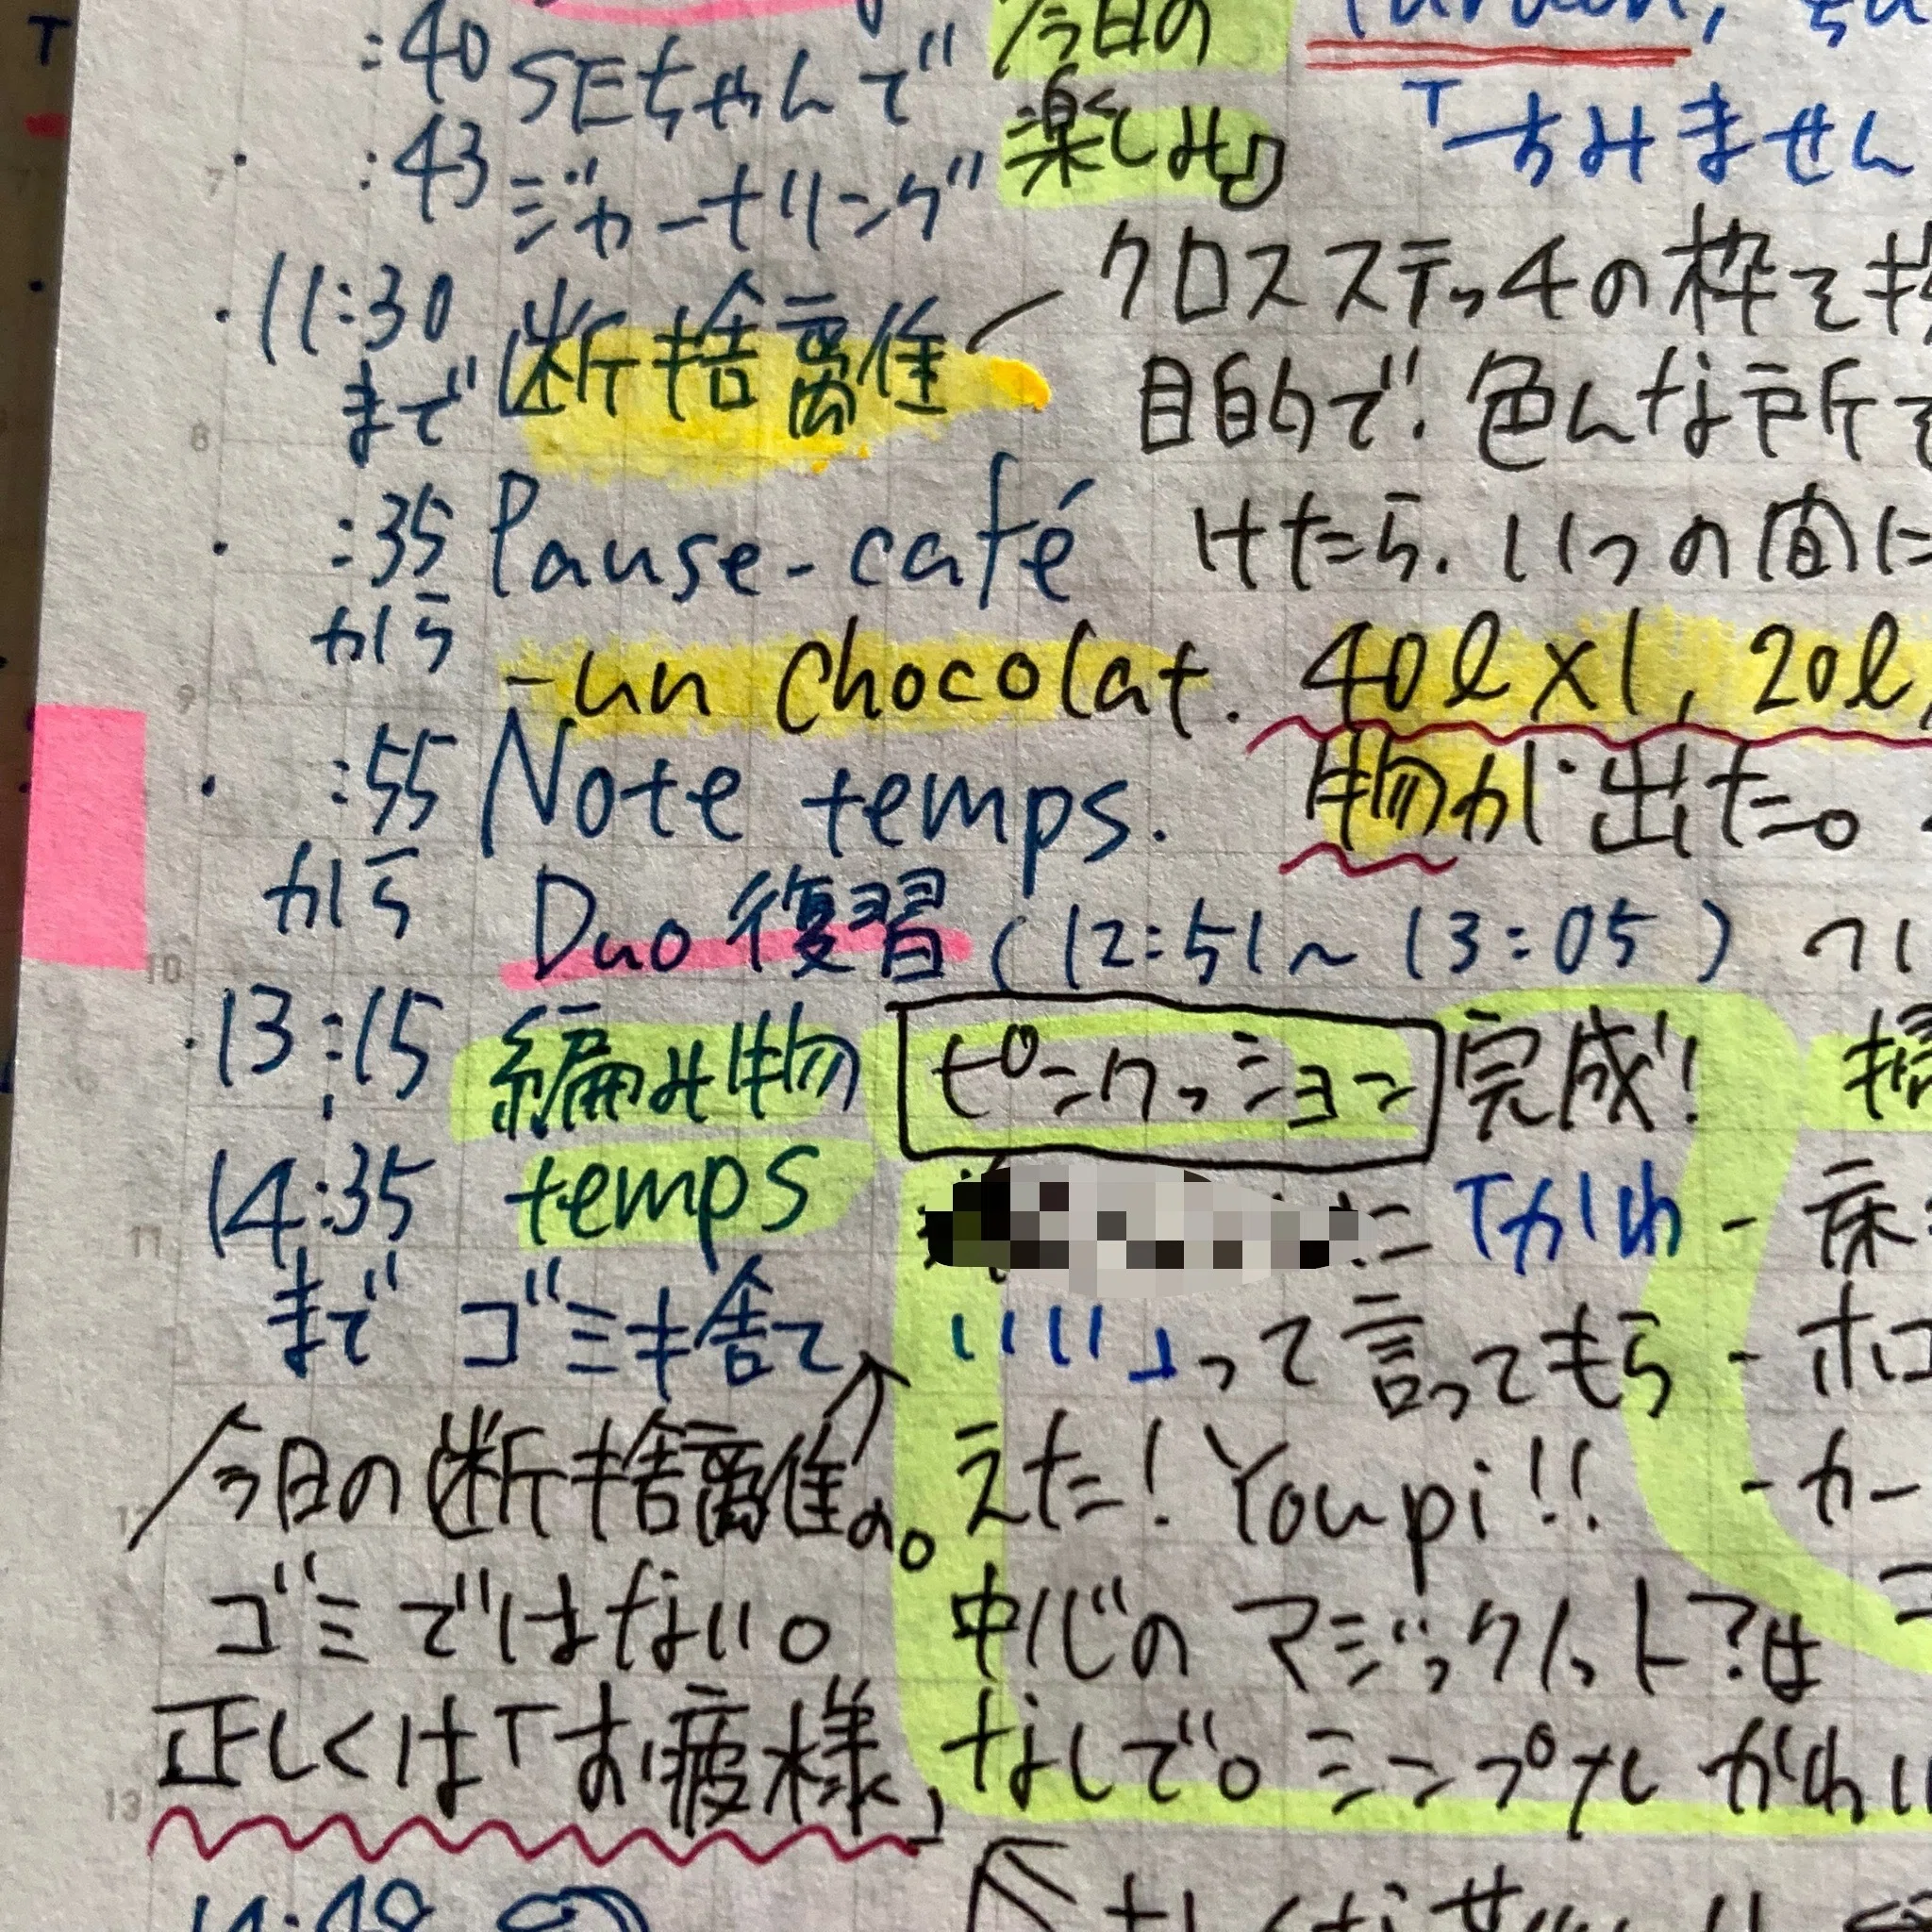 :40 SEちゃんで
:43 ジャーナリング
今日の
楽しみ♪
「すみません
・11:30 断捨離
まで
クロスステッチの枠を
目的で、色んな所
けたら、いつの間に
・ :35 Pause-café
から
- un chocolat. 40ℓ×1, 20ℓ
物が出た。
・ :55 Note temps.
から
Duo 復習 (12:51〜13:05)
・13:15 編み物 ピンクッション 完成!
14:35 temps
まで ゴミ捨て
「かわ
いい」って言ってもら
えた! Youpi!!
中心のマジックノット?は
なしで。シンプル かわい
今日の断捨離の。
ゴミではない。
正しくは「お疲様」
- 床
- ホコ
- カー